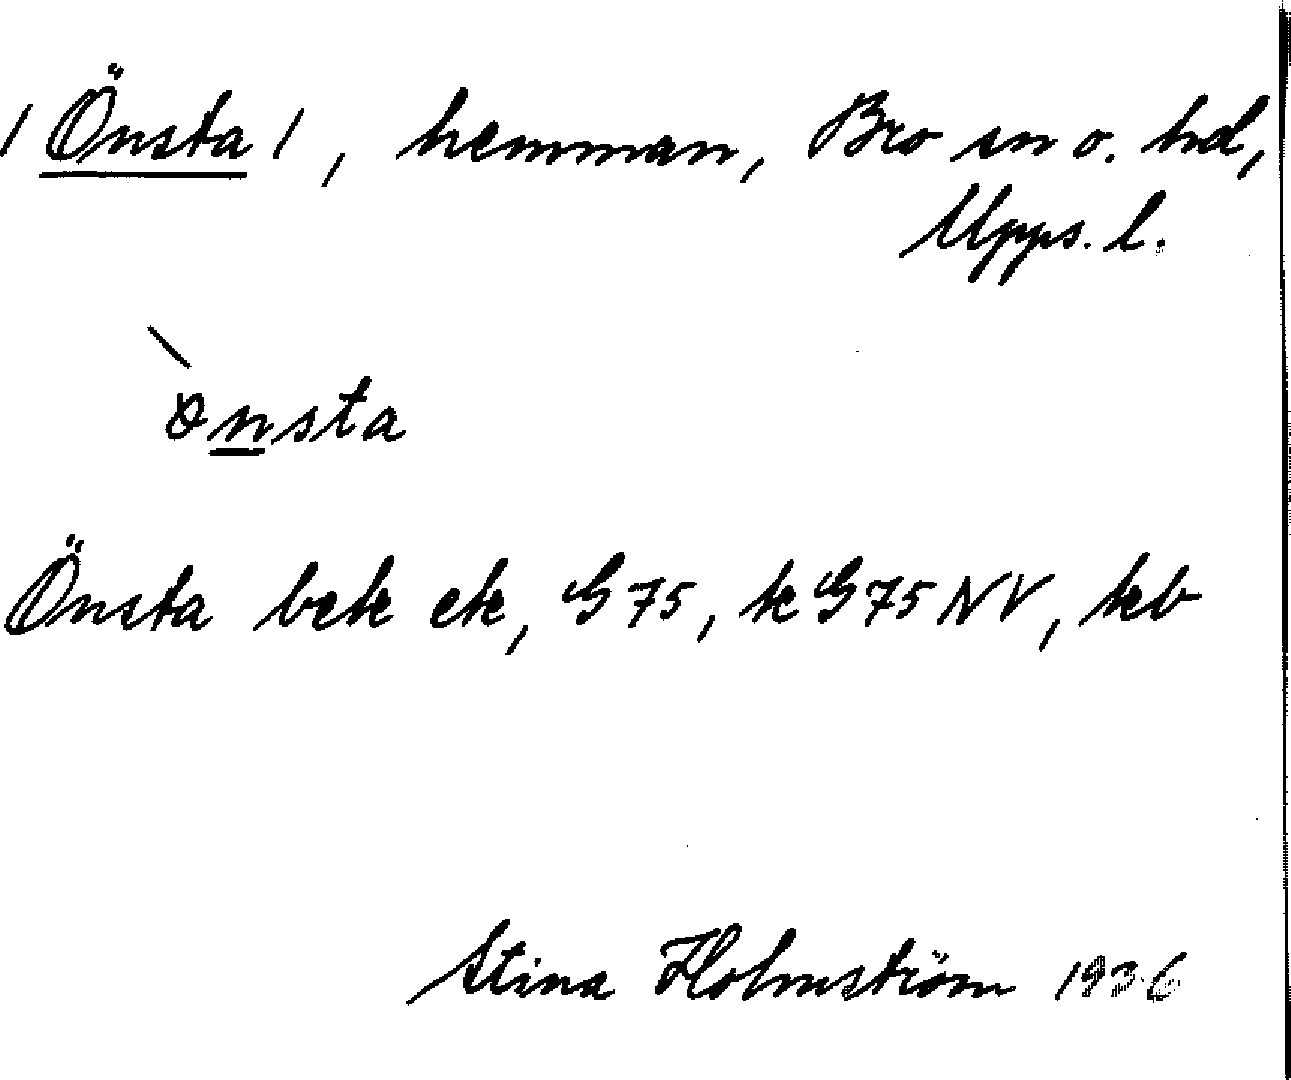 /Önsta/, hemman, Bro sn o. hd,
Upps. l.
önsta
Önsta bek ek, G 75, k G 75 NV, kb
Stina Holmström 1936